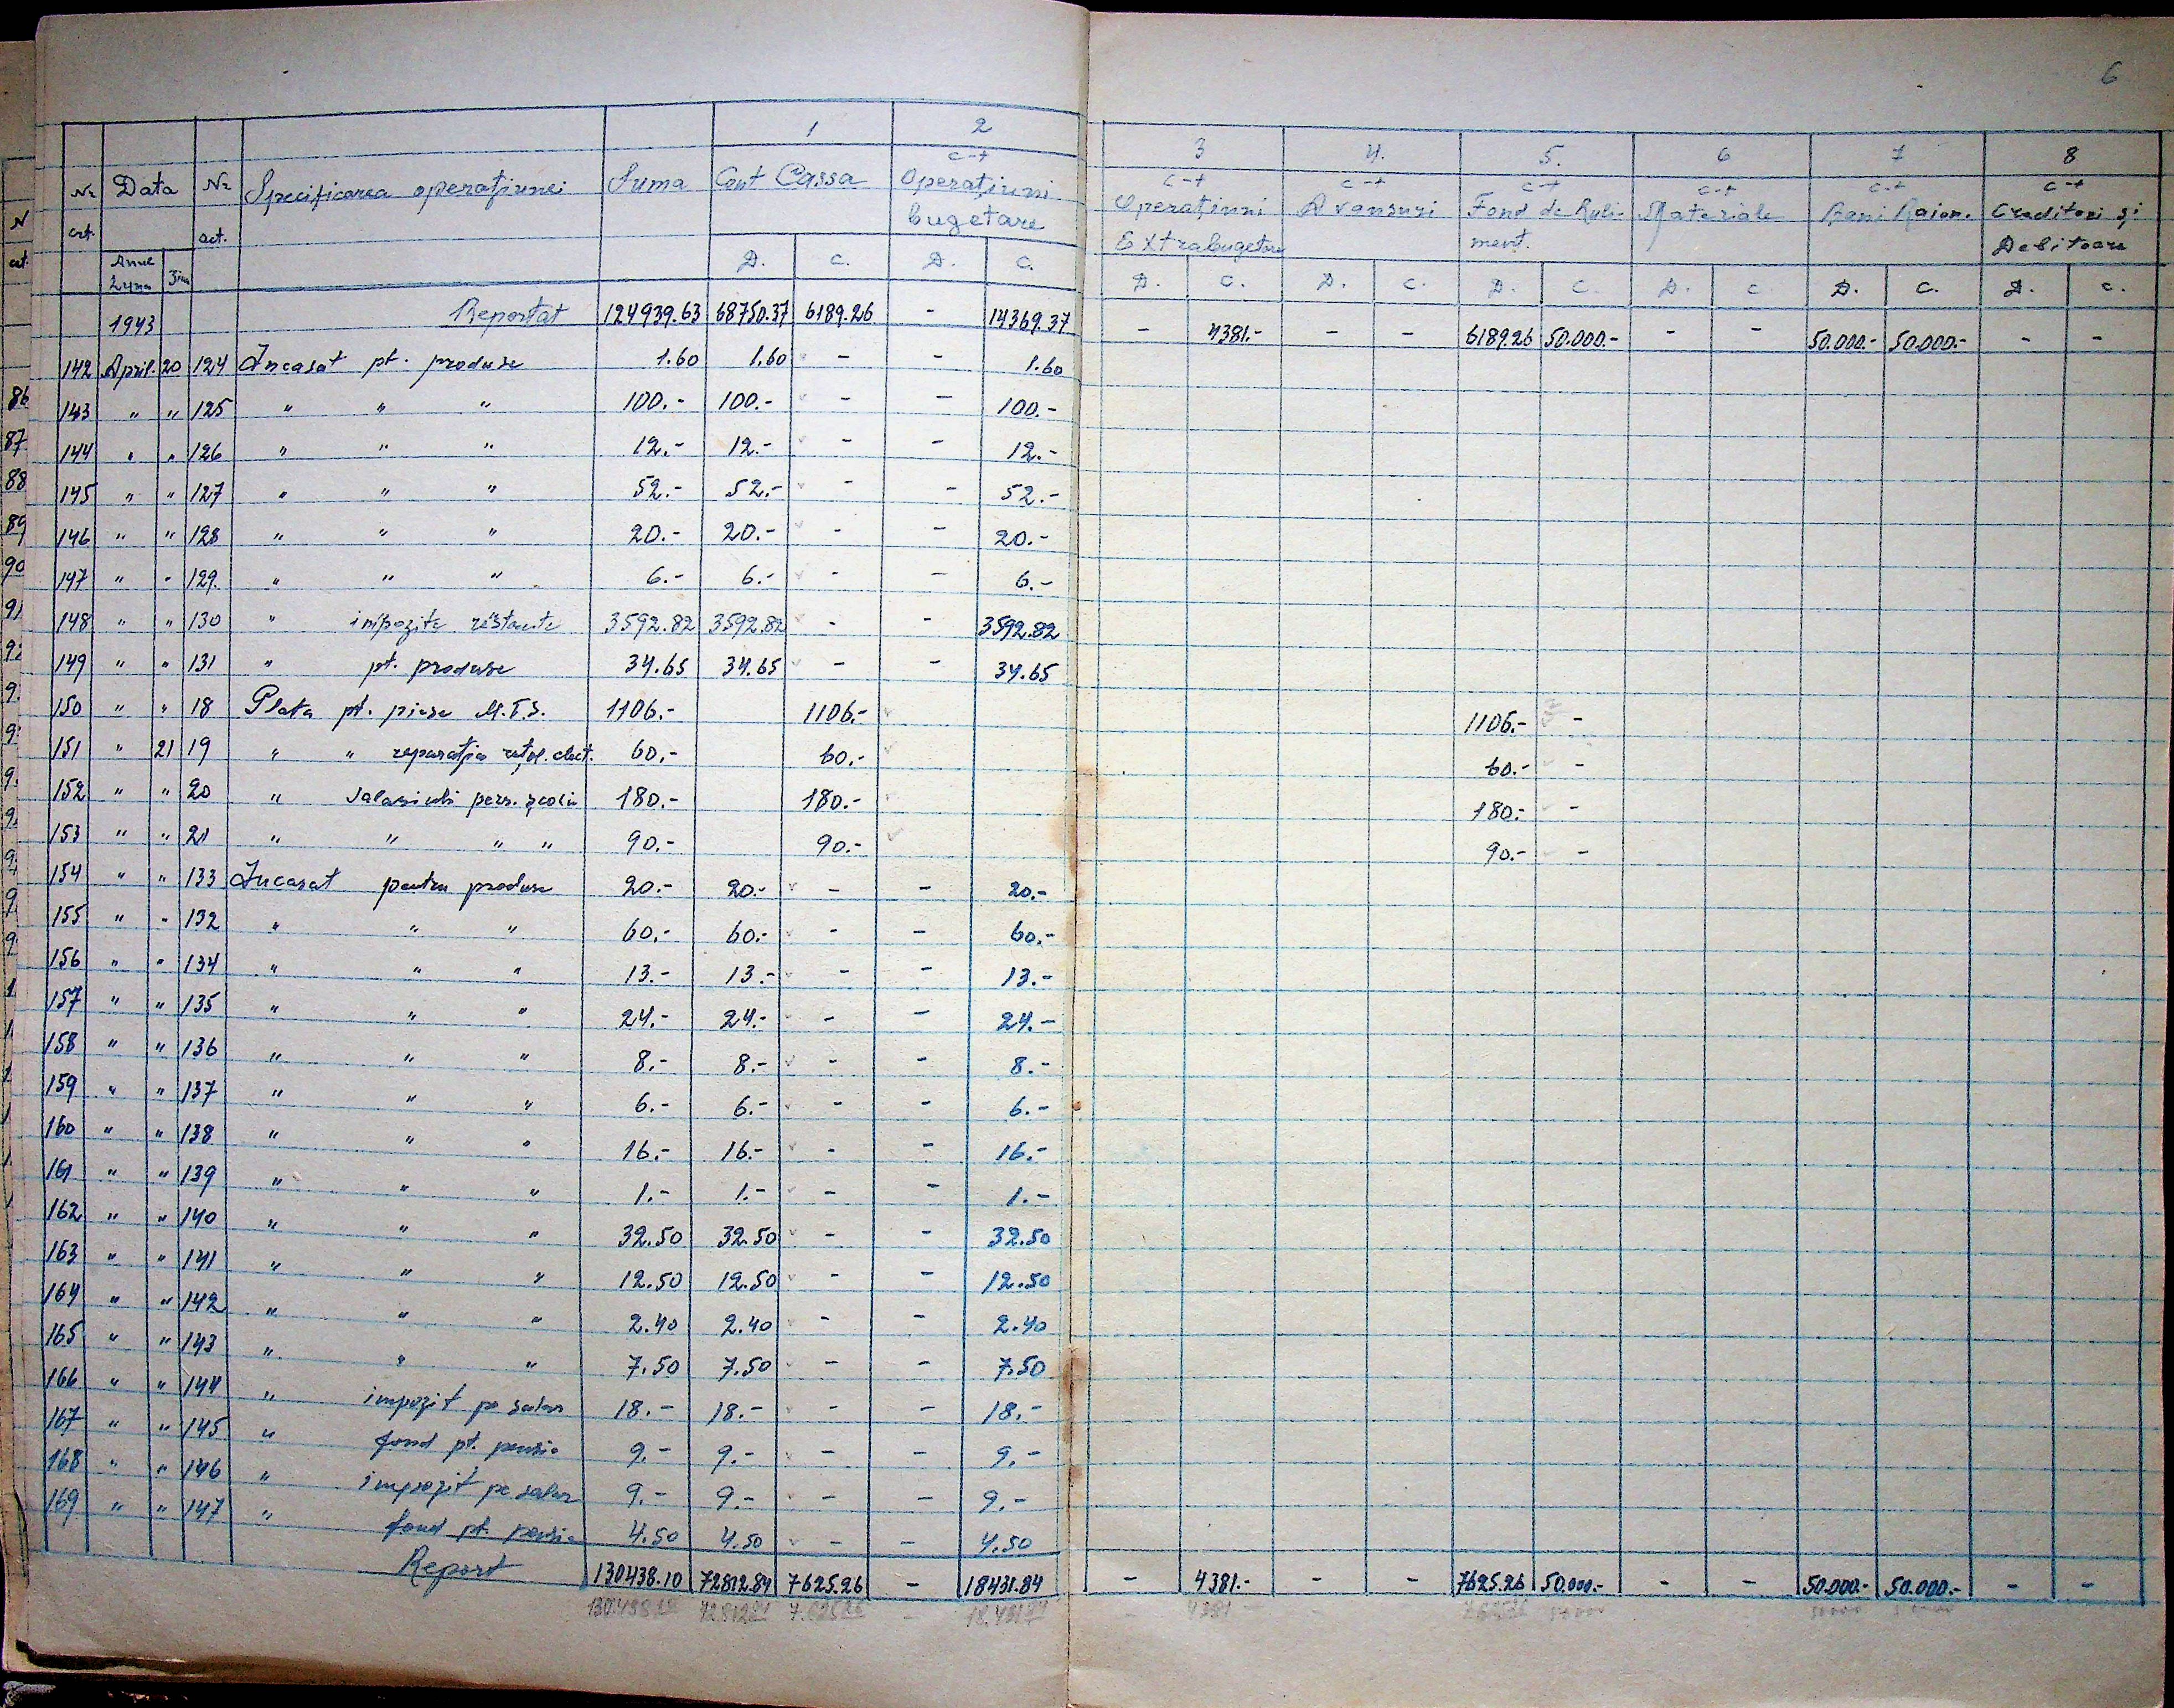 6
1 2 3 4. 5. 6 7 8
Nr crt. Data Nr act. Specificarea operațiunei Suma Cont Cassa c-t Operațiuni bugetare c-t Operațiuni Extrabugetare c-t Avansuri c-t Fond de Ruli- ment. c-t Materiale c-t Bani Raion. c-t Creditori și Debitoare
Anul Luna Ziua D. C. D. C. D. C. D. C. D. C. D. C D. C. D. C.
1943 Reportat 124939.63 68750.37 6189.26 - 14369.37 - 4381.- - - 6189.26 50.000.- - - 50.000.- 50.000.- - -
142 April. 20 124 Incasat pt. produse 1.60 1.60 - - 1.60
143 " " 125 " " " 100.- 100.- - - 100.-
144 " " 126 " " " 12.- 12.- - - 12.-
145 " " 127 " " " 52.- 52.- - - 52.-
146 " " 128 " " " 20.- 20.- - - 20.-
147 " " 129. " " " 6.- 6.- - - 6.-
148 " " 130 " impozite restante 3592.82 3592.82 - - 3592.82
149 " " 131 " pt. produse 34.65 34.65 - - 34.65
150 " " 18 Plata pt. piese M.T.S. 1106.- 1106.- 1106.- -
151 " 21 19 " " reparația 60.- 60.- 60.- -
152 " " 20 " Salariul pers. 180.- 180.- 180.- -
153 " " 21 " " " " 90.- 90.- 90.- -
154 " " 133 Incasat pentru produse 20.- 20.- - - 20.-
155 " " 132 " " " 60.- 60.- - - 60.-
156 " " 134 " " " 13.- 13.- - - 13.-
157 " " 135 " " " 24.- 24.- - - 24.-
158 " " 136 " " " 8.- 8.- - - 8.-
159 " " 137 " " " 6.- 6.- - - 6.-
160 " " 138 " " " 16.- 16.- - - 16.-
161 " " 139 " " " 1.- 1.- - - 1.-
162 " " 140 " " " 32.50 32.50 - - 32.50
163 " " 141 " " " 12.50 12.50 - - 12.50
164 " " 142 " " " 2.40 2.40 - - 2.40
165 " " 143 " " " 7.50 7.50 - - 7.50
166 " " 144 " impozit pe salar 18.- 18.- - - 18.-
167 " " 145 " fond pt. pensie 9.- 9.- - - 9.-
168 " " 146 " impozit pe salar 9.- 9.- - - 9.-
169 " " 147 " fond pt. pensie 4.50 4.50 - - 4.50
Report 130438.10 72812.84 7625.26 - 18431.84 - 4381.- - - 7625.26 50.000.- - - 50.000.- 50.000.- - -